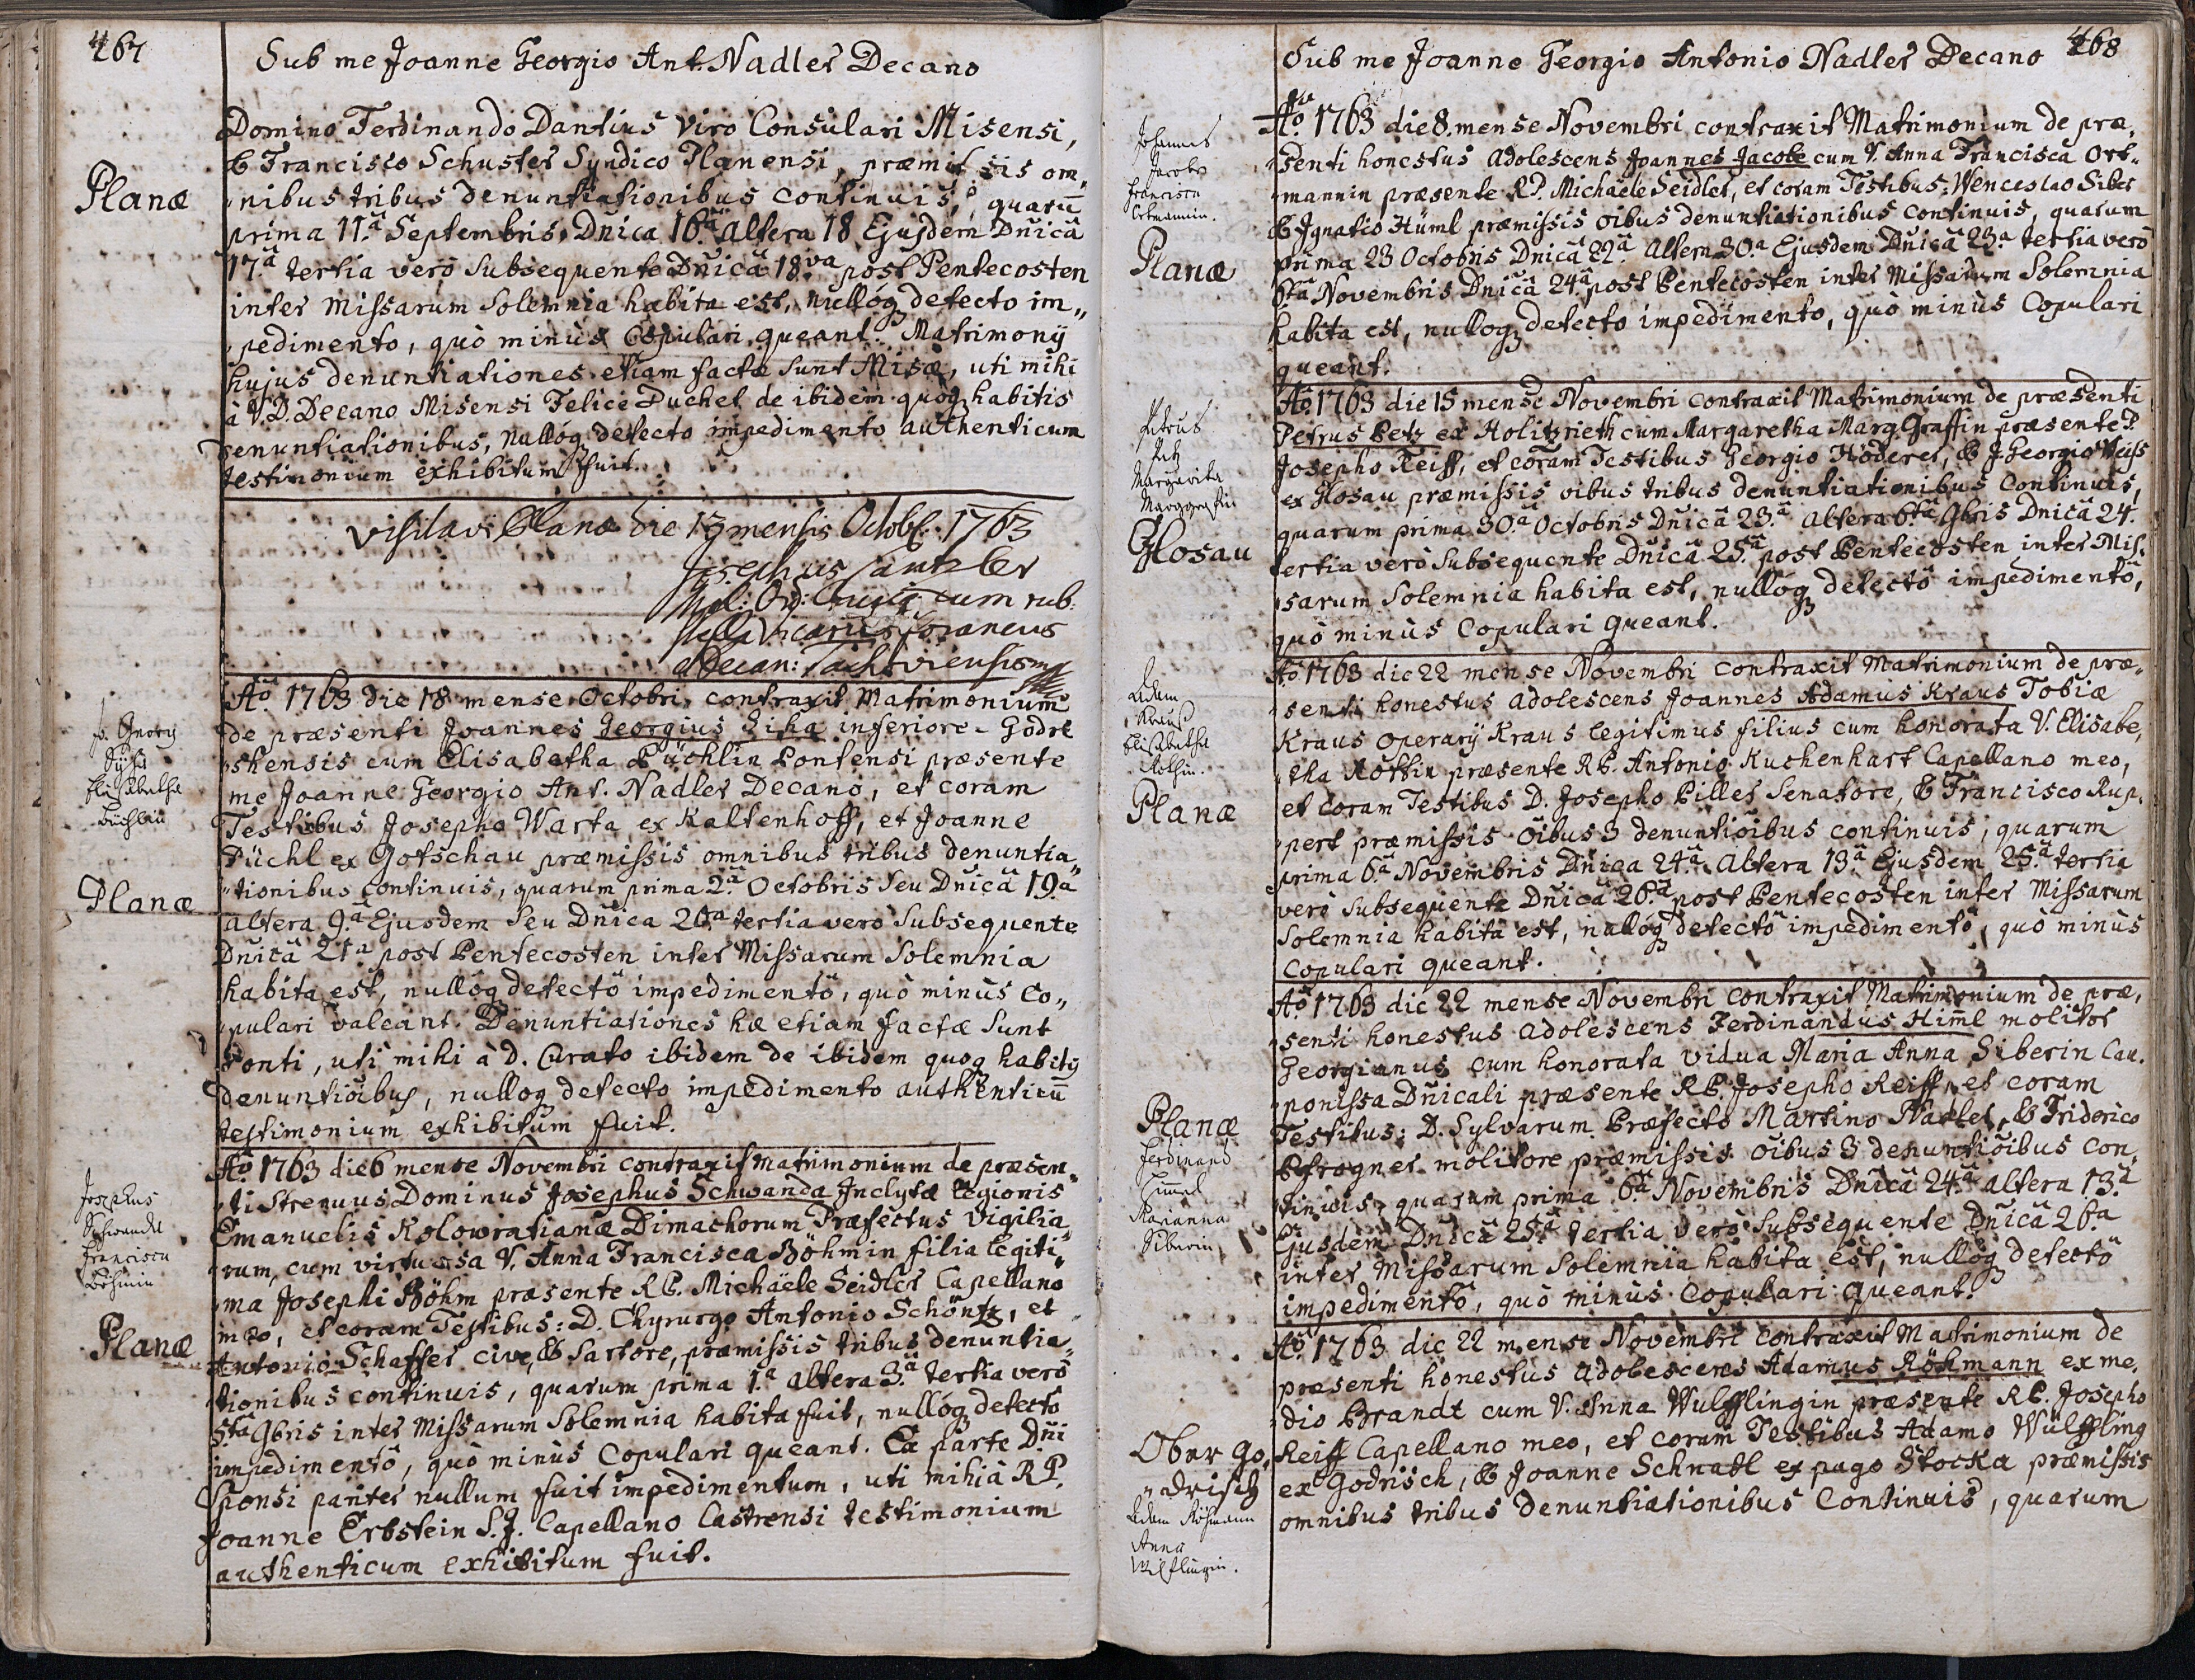 467
Sub me Joanne Georgio Ant. Nadler Decano
Domino Ferdinando Dantius Viro Consulari Misensi,
& Francisco Schuster Syndico Planensi, præmissis om„
Planæ
„nibus tribus denuntiationibus continuis, quarū
prima 11.ā Septembris Dnica 16.ā altera 18 Ejusdem Dnicā
17.ā tertia verò subsequente Dnicā 18.va post Pentecosten
inter Missarum Solemnia habita est, nullóq detecto im„
„pedimento, quò minùs Copulari queant. Matrimonÿ
hujus denuntiationes etiam factæ sunt Misæ, uti mihi
à V.D. Decano Misensi Felice Puchel de ibidem quoq habitis
denuntiationibus, nullóq detecto impedimento authenticum
testimonium exhibitum fuit.
Visitavi Planæ die 13 mensis Octobr. 1763
Josephus
cum rub:
Stella Vicarius foraneus
et Decan: Tachoviensis mp
Aō 1763 die 18 mense Octobri, contraxit Matrimonium
de præsenti Joannes Georgius Ziha inferiore-Godri
„shensis cum Elisabetha Püchlin Pontensi præsente
me Joanne Georgio Ant. Nadler Decano, et coram
Testibus Josepho Warta ex Kaltenhoff, et Joanne
Püchl ex Gotschau præmissis omnibus tribus denuntia„
„tionibus continuis, quarum prima 2.ā Octobris seu Dnicā 19.a
Jo. Georg
Elisabetha
Büchlin
Planæ
altera 9.ā Ejusdem seu Dnica 20.a tertia verò subsequente
Dnicā 21.a post Pentecosten inter Missarum Solemnia
habita est, nullóq detectō impedimentō, quò minùs co„
„pulari valeant. Denuntiationes hæ etiam factæ sunt
Ponti, uti mihi à D. Curato ibidem de ibidem quoq habitis
denuntiōibus, nulloq detecto impedimento authenticū
testimonium exhibitum fuit.
Aō 1763 die 6 mense Novembri contraxit matrimonium de præsen„
„ti Strenuus Dominus Josephus Schwanda Inclytæ legionis
Emanuelis Kolowratianæ Dimachorum Præfectus Vigilia„
„rum, cum virtuosa V. Anna Francisca Böhmin filia legiti„
„ma Josephi Böhm præsente R.P. Michaële Seidler Capellano
meo, et coram Testibus: D. Chyrurgo Antonio Schöntz, et
Antonio Schaffer cive, & Sartore, præmissis tribus denuntia„
„tionibus continuis, quarum prima 1.ª altera 3.ª tertia verò
5.ta 9bris inter Missarum Solemnia habita fuit, nullóq detecto
impedimentō, quò minùs Copulari queant. Ex parte Dni
Sponsi pariter nullum fuit impedimentum, uti mihi à R.P.
Joanne Erbstein S.J. Capellano Castrensi testimonium
authenticum exhibitum fuit.
Josephus
Schwandt
Francisca
Böhmin
Planæ
468
Sub me Joanne Georgio Antonio Nadler Decano
Aō 1763 die 8. mense Novembri contraxit Matrimonium de præ„
„senti honestus adolescens Joannes Jacobe cum V. Anna Francisca Ort„
„mannin præsente R.P. Michaële Seidler, et coram Testibus: Wenceslao Siber
& Ignatio Hüml præmissis oibus denuntiationibus continuis, quarum
prima 23 Octobris Dnicā 22.ā Altera 30.a Ejusdem Dnicā 23.a tertia verò
6ta Novembris Dnicā 24.ā post Pentecosten inter Missarum Solemnia
habita est, nulloq detecto impedimento, quò minùs Copulari
queant.
Johannes
Jacobe
Francisca
Ortmannin.
Planæ
Aō 1763 die 15 mense Novembri contraxit Matrimonium de præsenti
Petrus Petz ex Holitzrieth cum Margaretha Marg.Graffin præsente P.
Josepho Reiff, et coram Testibus Georgio Höderer, & J.Georgio Weiss
ex Glosau præmissis oibus tribus denuntiationibus continuis,
quarum prima 30.ā Octobris Dnicā 23.ā altera 6.tā 9bris Dnicā 24.
tertia verò subsequente Dnicā 25.ā post Pentecosten inter Mis„
„sarum Solemnia habita est, nullóq detectō impedimentō,
quò minùs Copulari queant.
Petrus
Petz
Margarita
Marggraffin
Glosau
Aō 1763 die 22 mense Novembri contraxit Matrimonium de præ„
„senti honestus adolescens Joannes Adamus Kraus Tobiæ
Kraus operarÿ Kraus legitimus filius cum honorata V. Elisabe„
„tha Rottin præsente R.P. Antonio Kuchenhart Capellano meo,
et coram Testibus D. Josepho Piller Senatore, & Francisco Rup„
„pert præmissis oibus 3 denuntiōibus continuis, quarum
prima 6.ā Novembris Dnica 24.ā Altera 13.ā Ejusdem 25.ā tertia
verò subsequente Dnicā 26.ā post Pentecosten inter Missarum
Solemnia habita est, nullóq detectō impedimentō, quò minùs
Copulari queant.
Adam
Krauß
Elisabetha
Rothin.
Planæ
Aō 1763 die 22 mense Novembri contraxit Matrimonium de præ„
„senti honestus adolescens Ferdinandus Himl molitor
Georgianus cum honorata vidua Maria Anna Siberin Cau„
„ponissa Dnicali præsente R.P. Josepho Reiff, et coram
Testibus: D. Sylvarum Præfecto Martino Nadler, & Friderico
Pfrogner molitore præmissis oibus 3 denuntiōibus con„
„tinuis, quarum prima 6.ā Novembris Dnicā 24.ā altera 13.ā
Ejusdem Dnicā 25.ā tertia verò subsequente Dnicā 26.a
inter Missarum Solemnia habita est, nullóq detectō
impedimentō, quò minùs Copulari queant.
Planæ
Ferdinand
Himml
Marianna
Siberin
Aō 1763 die 22 mense Novembri contraxit Matrimonium de
præsenti honestus adolescens Adamus Röhmann ex me„
„dio Brandt cum V. Anna Wulfflingin præsente R.P. Josepho
Reiff Capellano meo, et coram Testibus Adamo Wülffling
ex Godrisch, & Joanne Schnabl ex pago Stocka præmissis
omnibus tribus denuntiationibus Continuis, quarum
Ober Go„
„drisch
Adam Röhmann
Anna
Wilflingin.